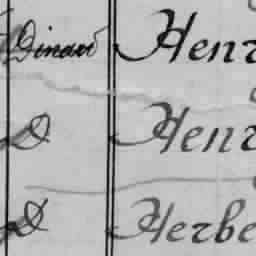 Dinard Henr
D Henr
D Herbe